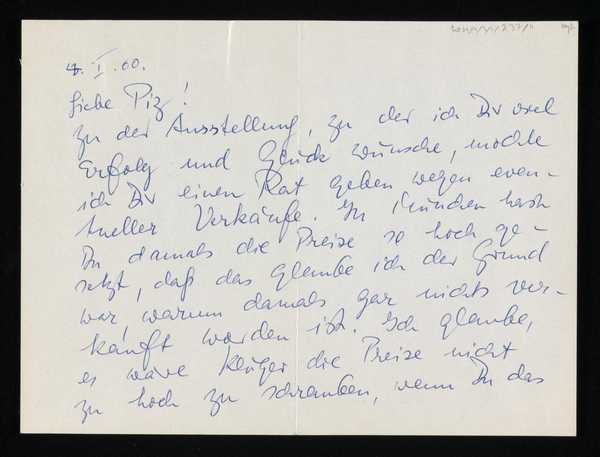 4. I. 60.
Liebe Piz!
Zu der Ausstellung, zu der ich Dir viel
Erfolg und Glück wünsche, möchte
ich Dir einen Rat geben wegen even-
tueller Verkäufe. In München hast
Du damals die Preise so hoch ge-
setzt, daß das glaube ich der Grund
war, warum damals gar nichts ver-
kauft worden ist. Ich glaube,
es wäre klüger die Preise nicht
zu hoch zu schrauben, wenn Du das